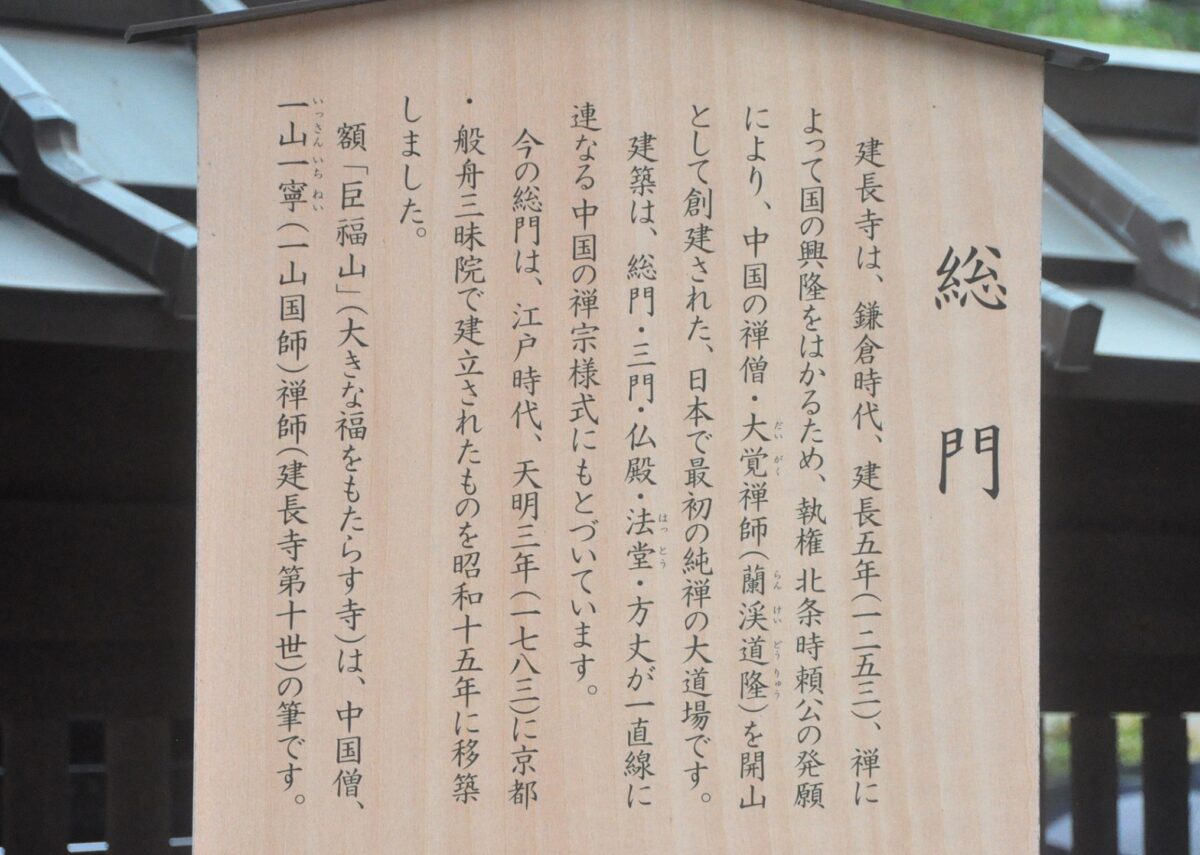 総門
建長寺は、鎌倉時代、建長五年(一二五三)、禅に
よって国の興隆をはかるため、執権 北条時頼公の発願
により、中国の禅僧・大覚禅師(蘭渓道隆)を開山
だい がく らん けい どう りゅう
として創建された、日本で最初の純禅の大道場です。
建築は、総門・三門・仏殿・法堂・方丈が一直線に
はっ とう
連なる 中国の禅宗様式にもとづいています。
今の総門は、江戸時代、天明三年(一七八三)に京都
・般舟三昧院で建立されたものを昭和十五年に移築
しました。
額「巨福山」(大きな福をもたらす寺)は、中国僧、
一山一寧(一山国師)禅師(建長寺第十世)の筆です。
いっさん いち ねい